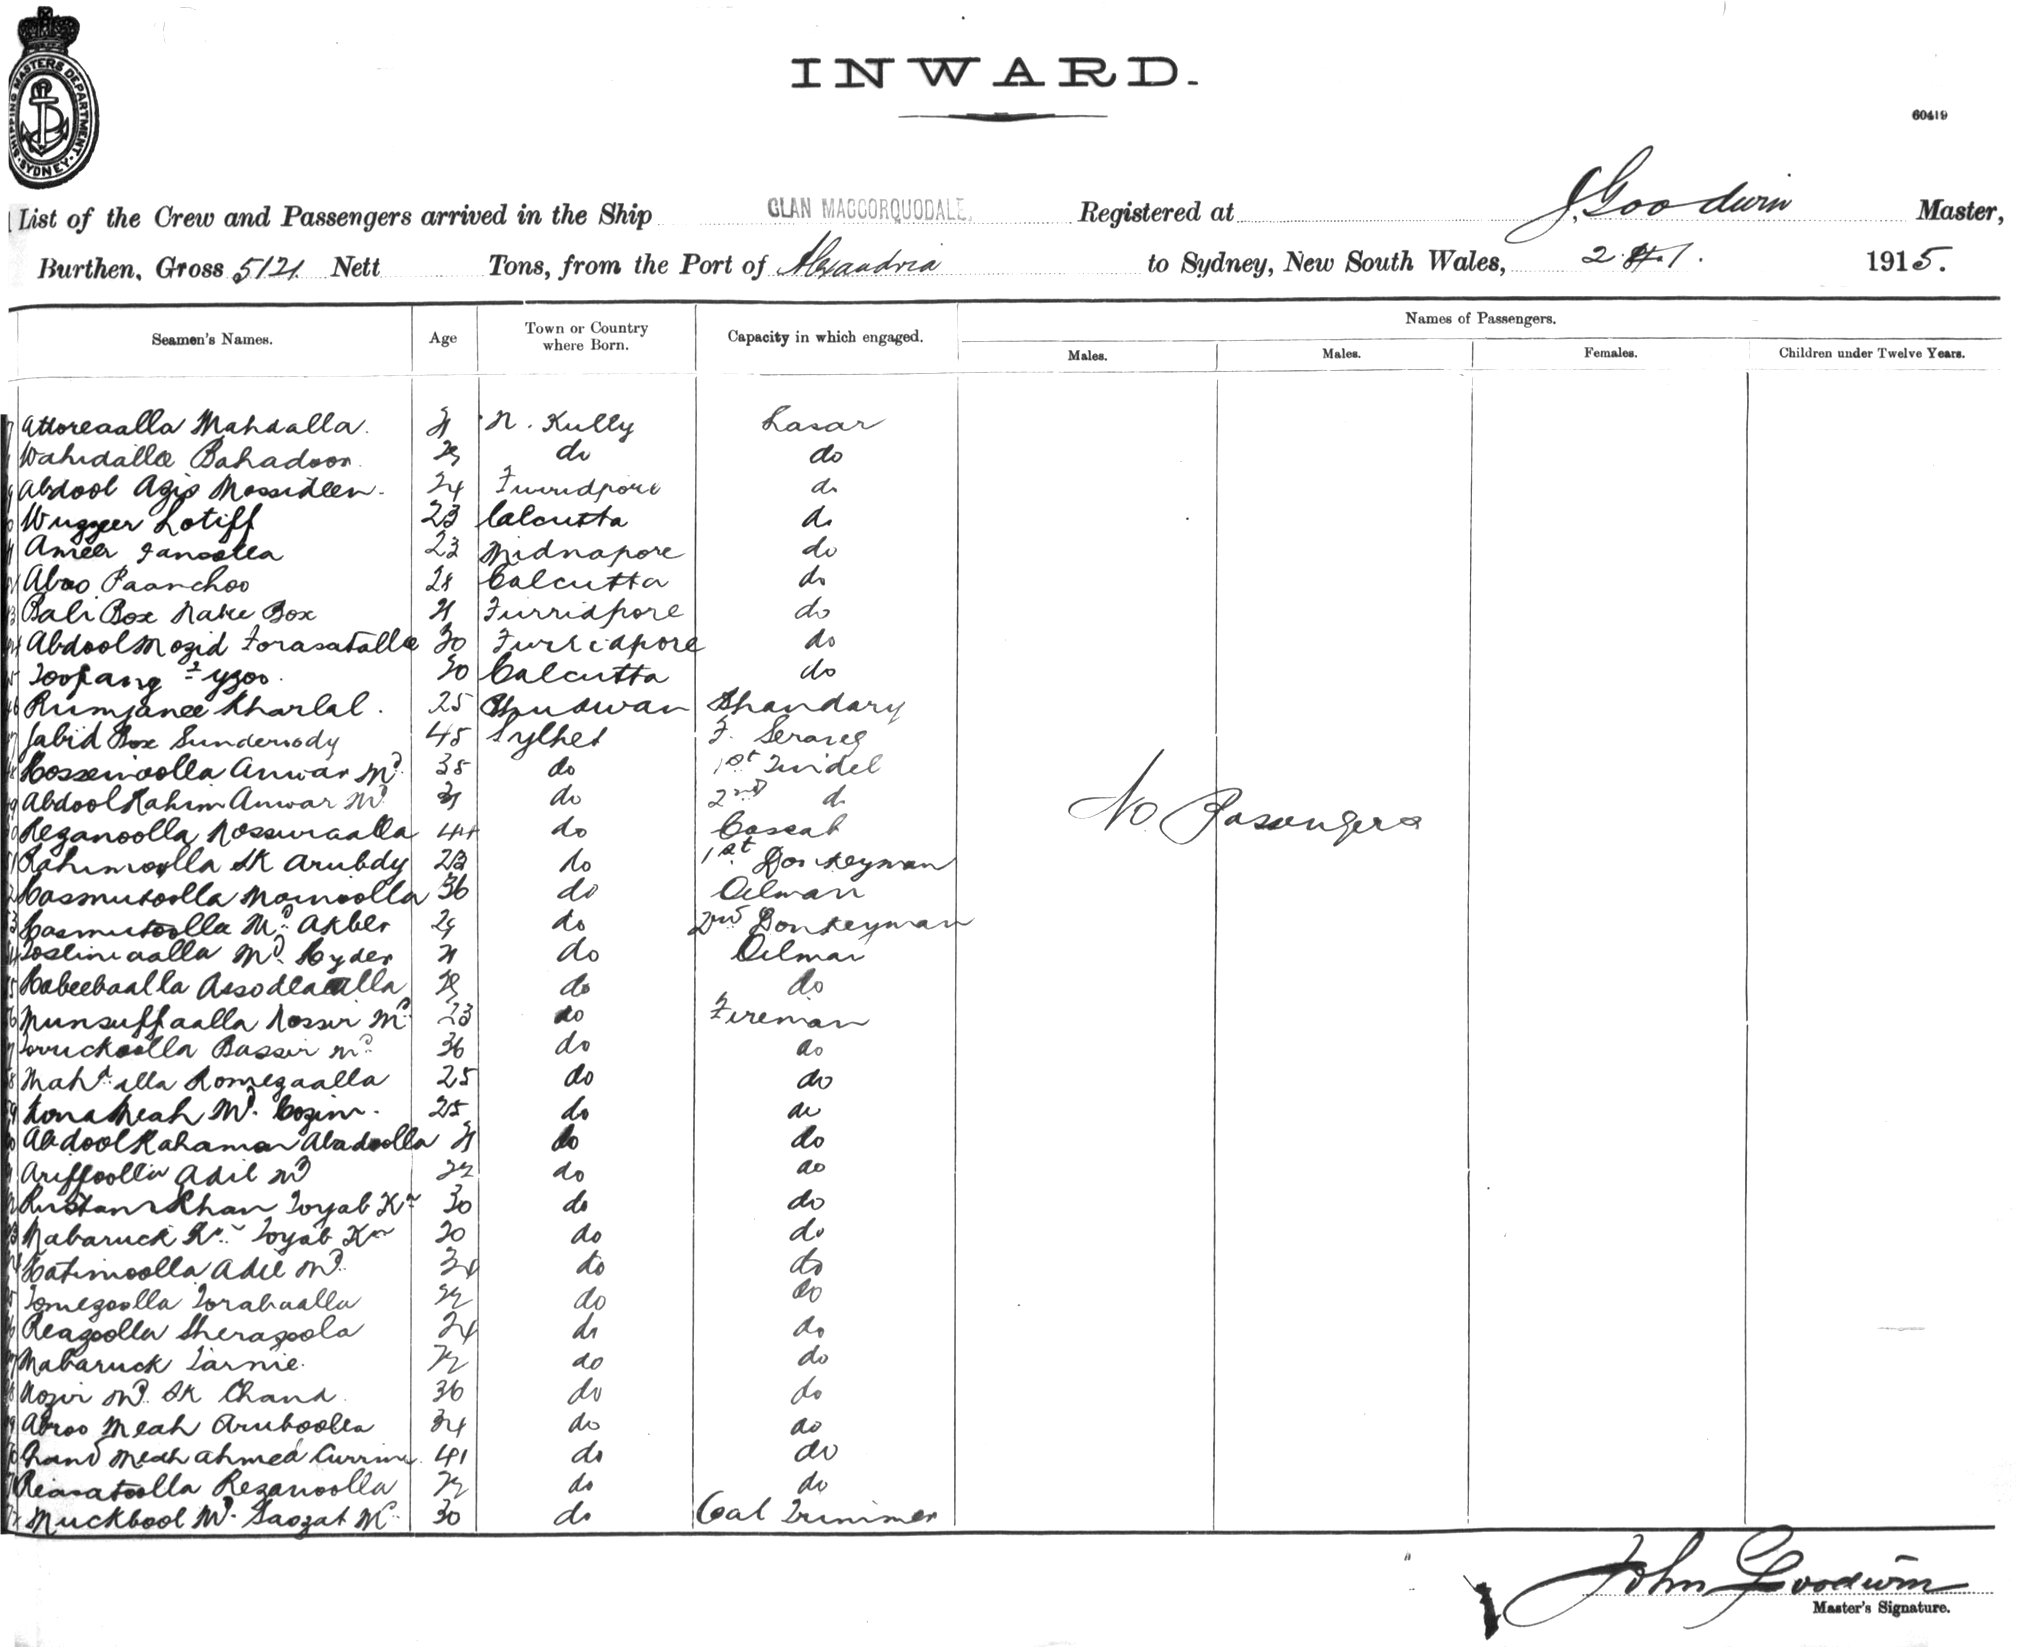 SHIPPING MASTERS DEPARTMENT. SYDNEY.
INWARD.
60419
List of the Crew and Passengers arrived in the Ship CLAN MACCORQUODALE, Registered at J. Goodwin Master,
Burthen, Gross 5121 Nett Tons, from the Port of Alexandria to Sydney, New South Wales, 2. 1. 1915.
Seamen's Names. Age Town or Country where Born. Capacity in which engaged. Names of Passengers.
Males. Males. Females. Children under Twelve Years.
Attoreaalla Mahdalla. N. Kully Lasar
Wahidalla Bahadoor. do do
Abdool Agis Mossideen. 24 Furridpore do
Wuggeer Lotiff 23 Calcutta do
Ameer 23 Midnapore do
Aboo Paanchoo 28 Calcutta do
Bali Box Naku Box Furridpore do
Abdool Mozid Forasatalla 30 Furridpore do
Calcutta do
Rumjanee Kharlal. 25 Bhandary
Jabid Box Sunderrody 45 Sylhet F. Serang
Hosseinoolla Anwar Md. 35 do 1st Tindel
Abdool Rahim Anwar Md. do 2nd do
Rezanoolla Nossuraalla 44 do Cassab
Rahimoolla SK Arubdy 23 do 1st Donkeyman
Hasmutoolla Momoolla 36 do Oilman
Hasmutoolla Md. Akber 29 do 2nd Donkeyman
Toslimaalla Md. Hyder do Oilman
Habeebaalla do do
Munsuffaalla Nossir Md. 23 do Fireman
Torruckoolla Bassir Md. 36 do do
Mahd. alla Romezaalla 25 do do
Kona Meah Md. Cozim. 25 do do
Abdool Rahaman Abadoolla do do
Ariffoolla Adil Md do do
Rustam Khan Toyab Kn 30 do do
Mabaruck Kn. Toyab Kn 30 do do
Hatimoolla Adil Md. 34 do do
Tomezoolla Torabaalla do do
Reazoolla Sherazoola 24 do do
Mabaruck Tarnie. do do
Nozir Md. SK Chand. 36 do do
Abroo Meah Aruboolla 34 do do
Chand Meah Ahmed Currim 41 do do
Reasatoolla Rezanoolla do do
Muckbool Md. Saozat Md. 30 do Coal Trimmer
No Passengers
John Goodwin
Master's Signature.